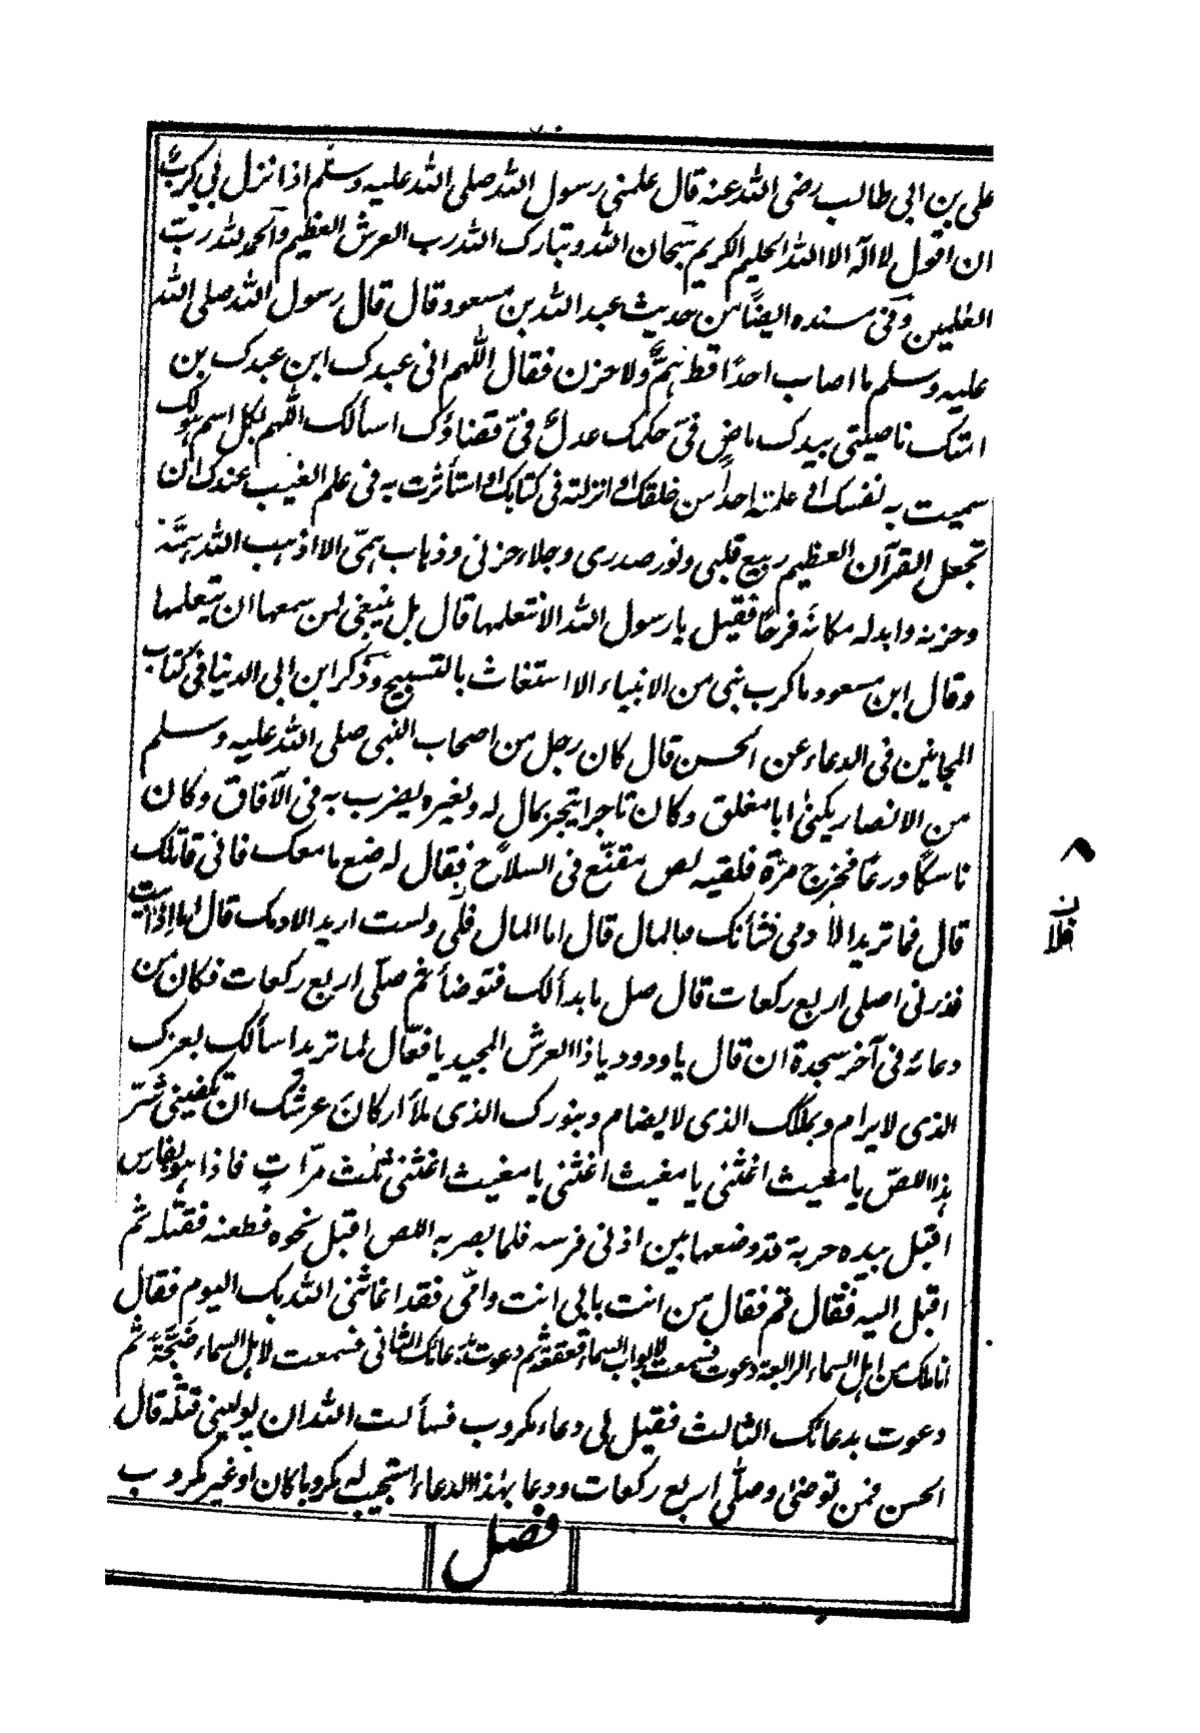 علی بن ابی طالب رضی الله عنه قال علمنی رسول الله صلی الله علیه وسلم اذا نزل بی کرب
ان اقول لا اله الا الله الحلیم الکریم سبحان الله وتبارک الله رب العرش العظیم والحمد لله رب
العٰلمین وفی مسنده ایضًا من حدیث عبد الله بن مسعود قال قال رسول الله صلی الله
علیه وسلم ما اصاب احدًا قط همٌّ ولا حزن فقال اللّٰهم انی عبدک ابن عبدک بن
امتک ناصیتی بیدک ماضٍ فیّ حکمک عدلٌ فیّ قضاؤک اسألک اللّٰهم بکل اسم هو لک
سمیت به نفسک او علمته احداً من خلقک او انزلته فی کتابک او استأثرت به فی علم الغیب عندک ان
تجعل القرآن العظیم ربیع قلبی ونور صدری وجلاء حزنی وذهاب همّی الا اذهب الله همّه
وحزنه وابدله مکانَه فرحًا فقیل یا رسول الله الا نتعلمها قال بل ینبغی لمن سمعها ان یتعلمها
وقال ابن مسعود ما کرب نبی من الانبیاء الا استغاث بالتسبیح وذکر ابن ابی الدنیا فی کتاب
المجانین فی الدعاء عن الحسن قال کان رجل من اصحاب النبی صلی الله علیه وسلم
من الانصار یکنیٰ ابا مغلق وکان تاجرا یتجر بمال له ولغیره یضرب به فی الآفاق وکان
ناسکًا ورعًا فخرج مرّة فلقیه لص مقنّع فی السلاح فقال له ضع ما معک فانی قاتلک
قال فما ترید الا دمی فشأنک بالمال قال اما المال فلی ولست ارید الا دمک قال اما اذا ابیت
فذرنی اصلی اربع رکعات قال صل ما بدأ لک فتوضأ ثم صلّی اربع رکعات فکان من
دعائه فی آخر سجدة ان قال یا ودود یا ذا العرش المجید یا فعّال لما ترید اسألک بعزک
الذی لا یرام وبملکک الذی لا یضام وبنورک الذی ملأ ارکانَ عرشک ان تکفینی شرّ
هذا اللصّ یا مغیث اغثنی یا مغیث اغثنی یا مغیث اغثنی ثلٰث مرّاتٍ فاذا هو بفارس
اقبل بیده حربة قد وضعها بین اذنی فرسه فلما بصر به اللص اقبل نحوه فطعنه فقتله ثم
اقبل الیه فقال قم فقال من انت بابی انت وامّی فقد اغاثنی الله بک الیوم فقال
انا ملک من اهل السماء الرابعة دعوت فسمعت لابواب السماء قعقعة ثم دعوت بدعائک الثانی فسمعت لاهل السماء ضجّةً ثم
دعوت بدعائک الثالث فقیل لی دعاء مکروب فسألت الله ان یولینی قتلَه قال
الحسن فمن توضئ وصلّی اربع رکعات ودعا بهٰذا الدعاء استجیب له مکروبا کان او غیر مکروب
فصل
ن
فلا